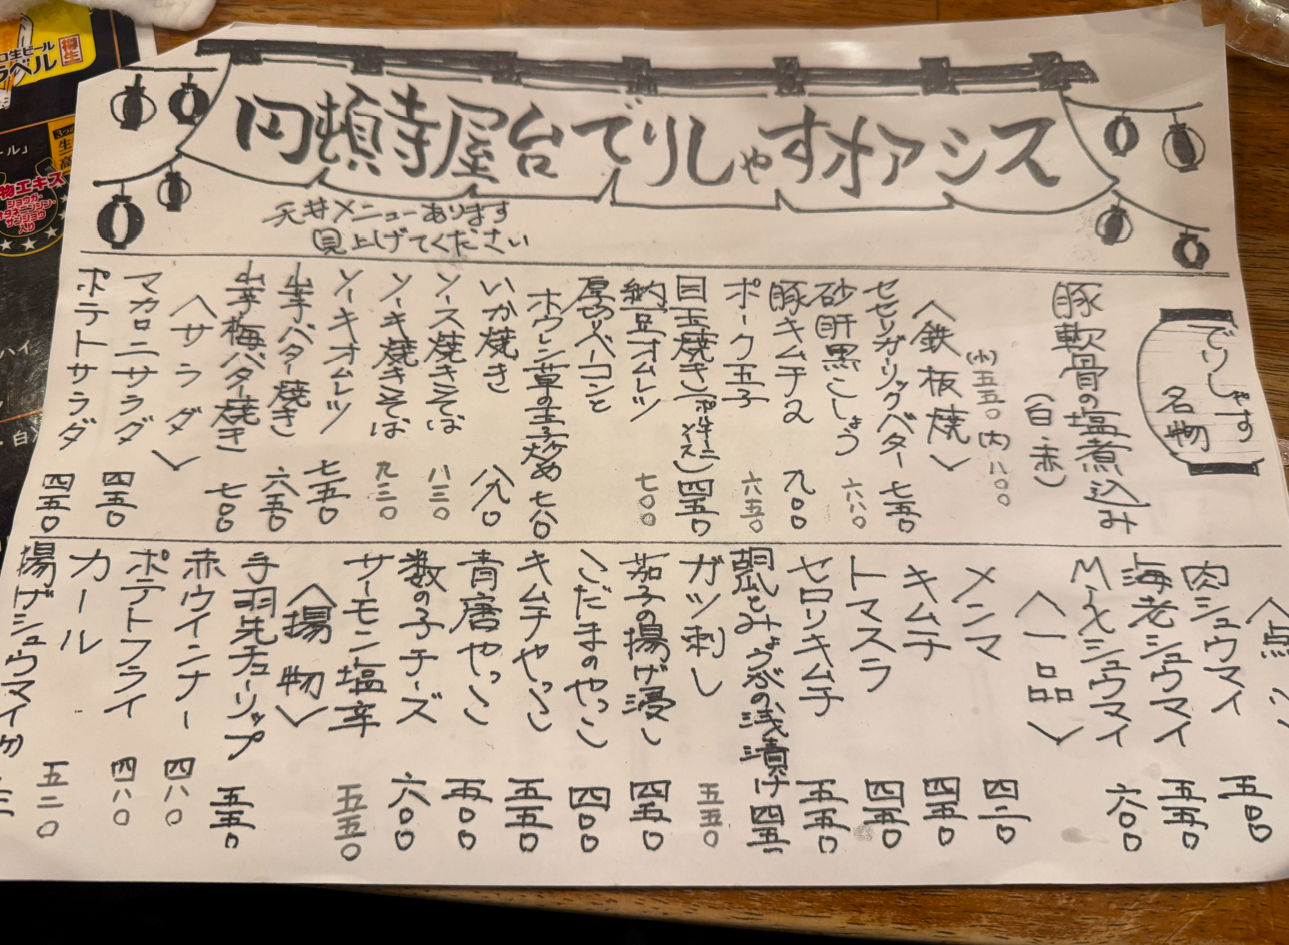 円頓寺屋台でりしゃすオアシス
天井メニューあります
見上げてください
でりしゃす
名物
豚軟骨の塩煮込み
(白・赤)
(小)五五〇 (大)八〇〇
〈鉄板焼〉
セセリガーリックバター 七五〇
砂肝黒こしょう 六六〇
豚キムチ 九〇〇
ポーク玉子 六五〇
目玉焼き 四五〇
納豆オムレツ 七〇〇
厚切りベーコンと
ホウレン草の玉子炒め 七八〇
いか焼き 八九〇
ソース焼きそば 八三〇
ソーキ焼きそば 九三〇
ソーキオムレツ 七五〇
山芋バター焼き 六五〇
山芋梅バター焼き 七〇〇
〈サラダ〉
マカロニサラダ 四五〇
ポテトサラダ 四五〇
肉シュウマイ 五〇〇
海老シュウマイ 五五〇
Mixシュウマイ 六〇〇
〈一品〉
メンマ 四二〇
キムチ 四五〇
トマスラ 四五〇
セロリキムチ 五五〇
胡瓜とみょうがの浅漬け 四五〇
ガツ刺し 五五〇
茄子の揚げ浸し 四五〇
こだまのやっこ 四〇〇
キムチやっこ 五五〇
青唐やっこ 五〇〇
数の子チーズ 六〇〇
サーモン塩辛 五五〇
〈揚物〉
手羽先チューリップ 五五〇
赤ウインナー 四八〇
ポテトフライ 四八〇
カール 五二〇
揚げシュウマイ
生ビール
樽生
ラベル
物エキス